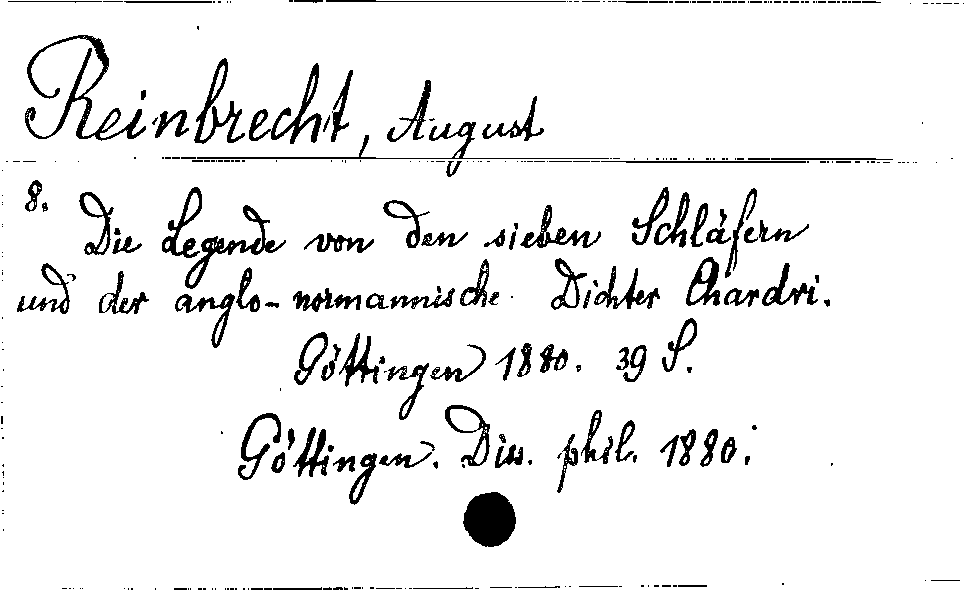 Reinbrecht, August
8.
Die Legende von den sieben Schläfern
und der anglo-normannische Dichter Chardri.
Göttingen 1880. 39 S.
Göttingen. Diss. phil. 1880.